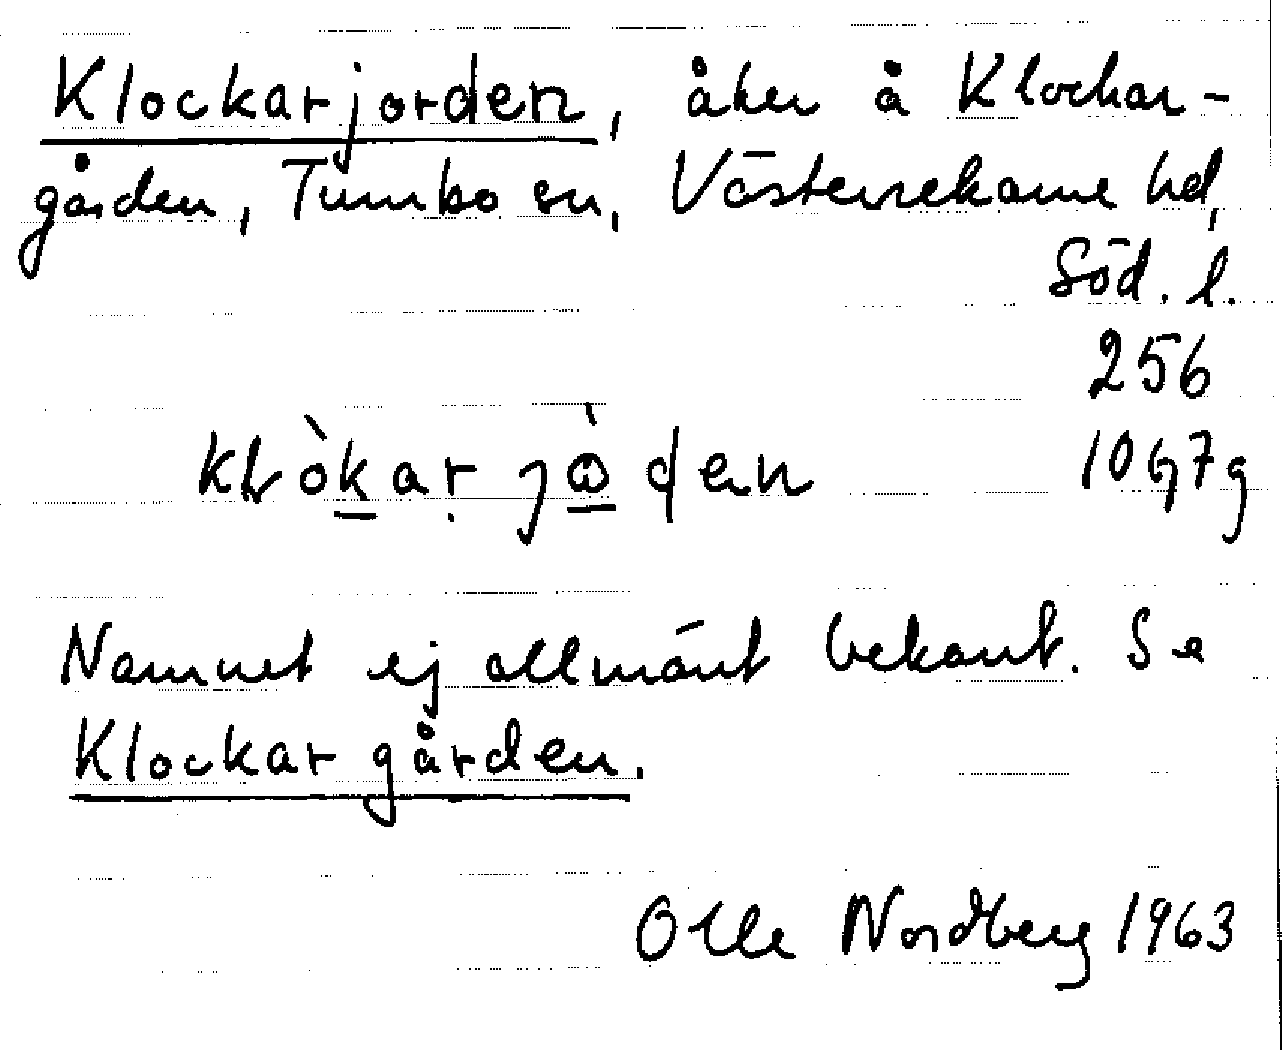 Klockarjorden, åker å Klockar-
gården, Tumbo sn, Västerrekarne hd,
Söd. l.
256
10G7g
Namnet ej allmänt bekant. Se
Klockargården.
Olle Nordberg 1963